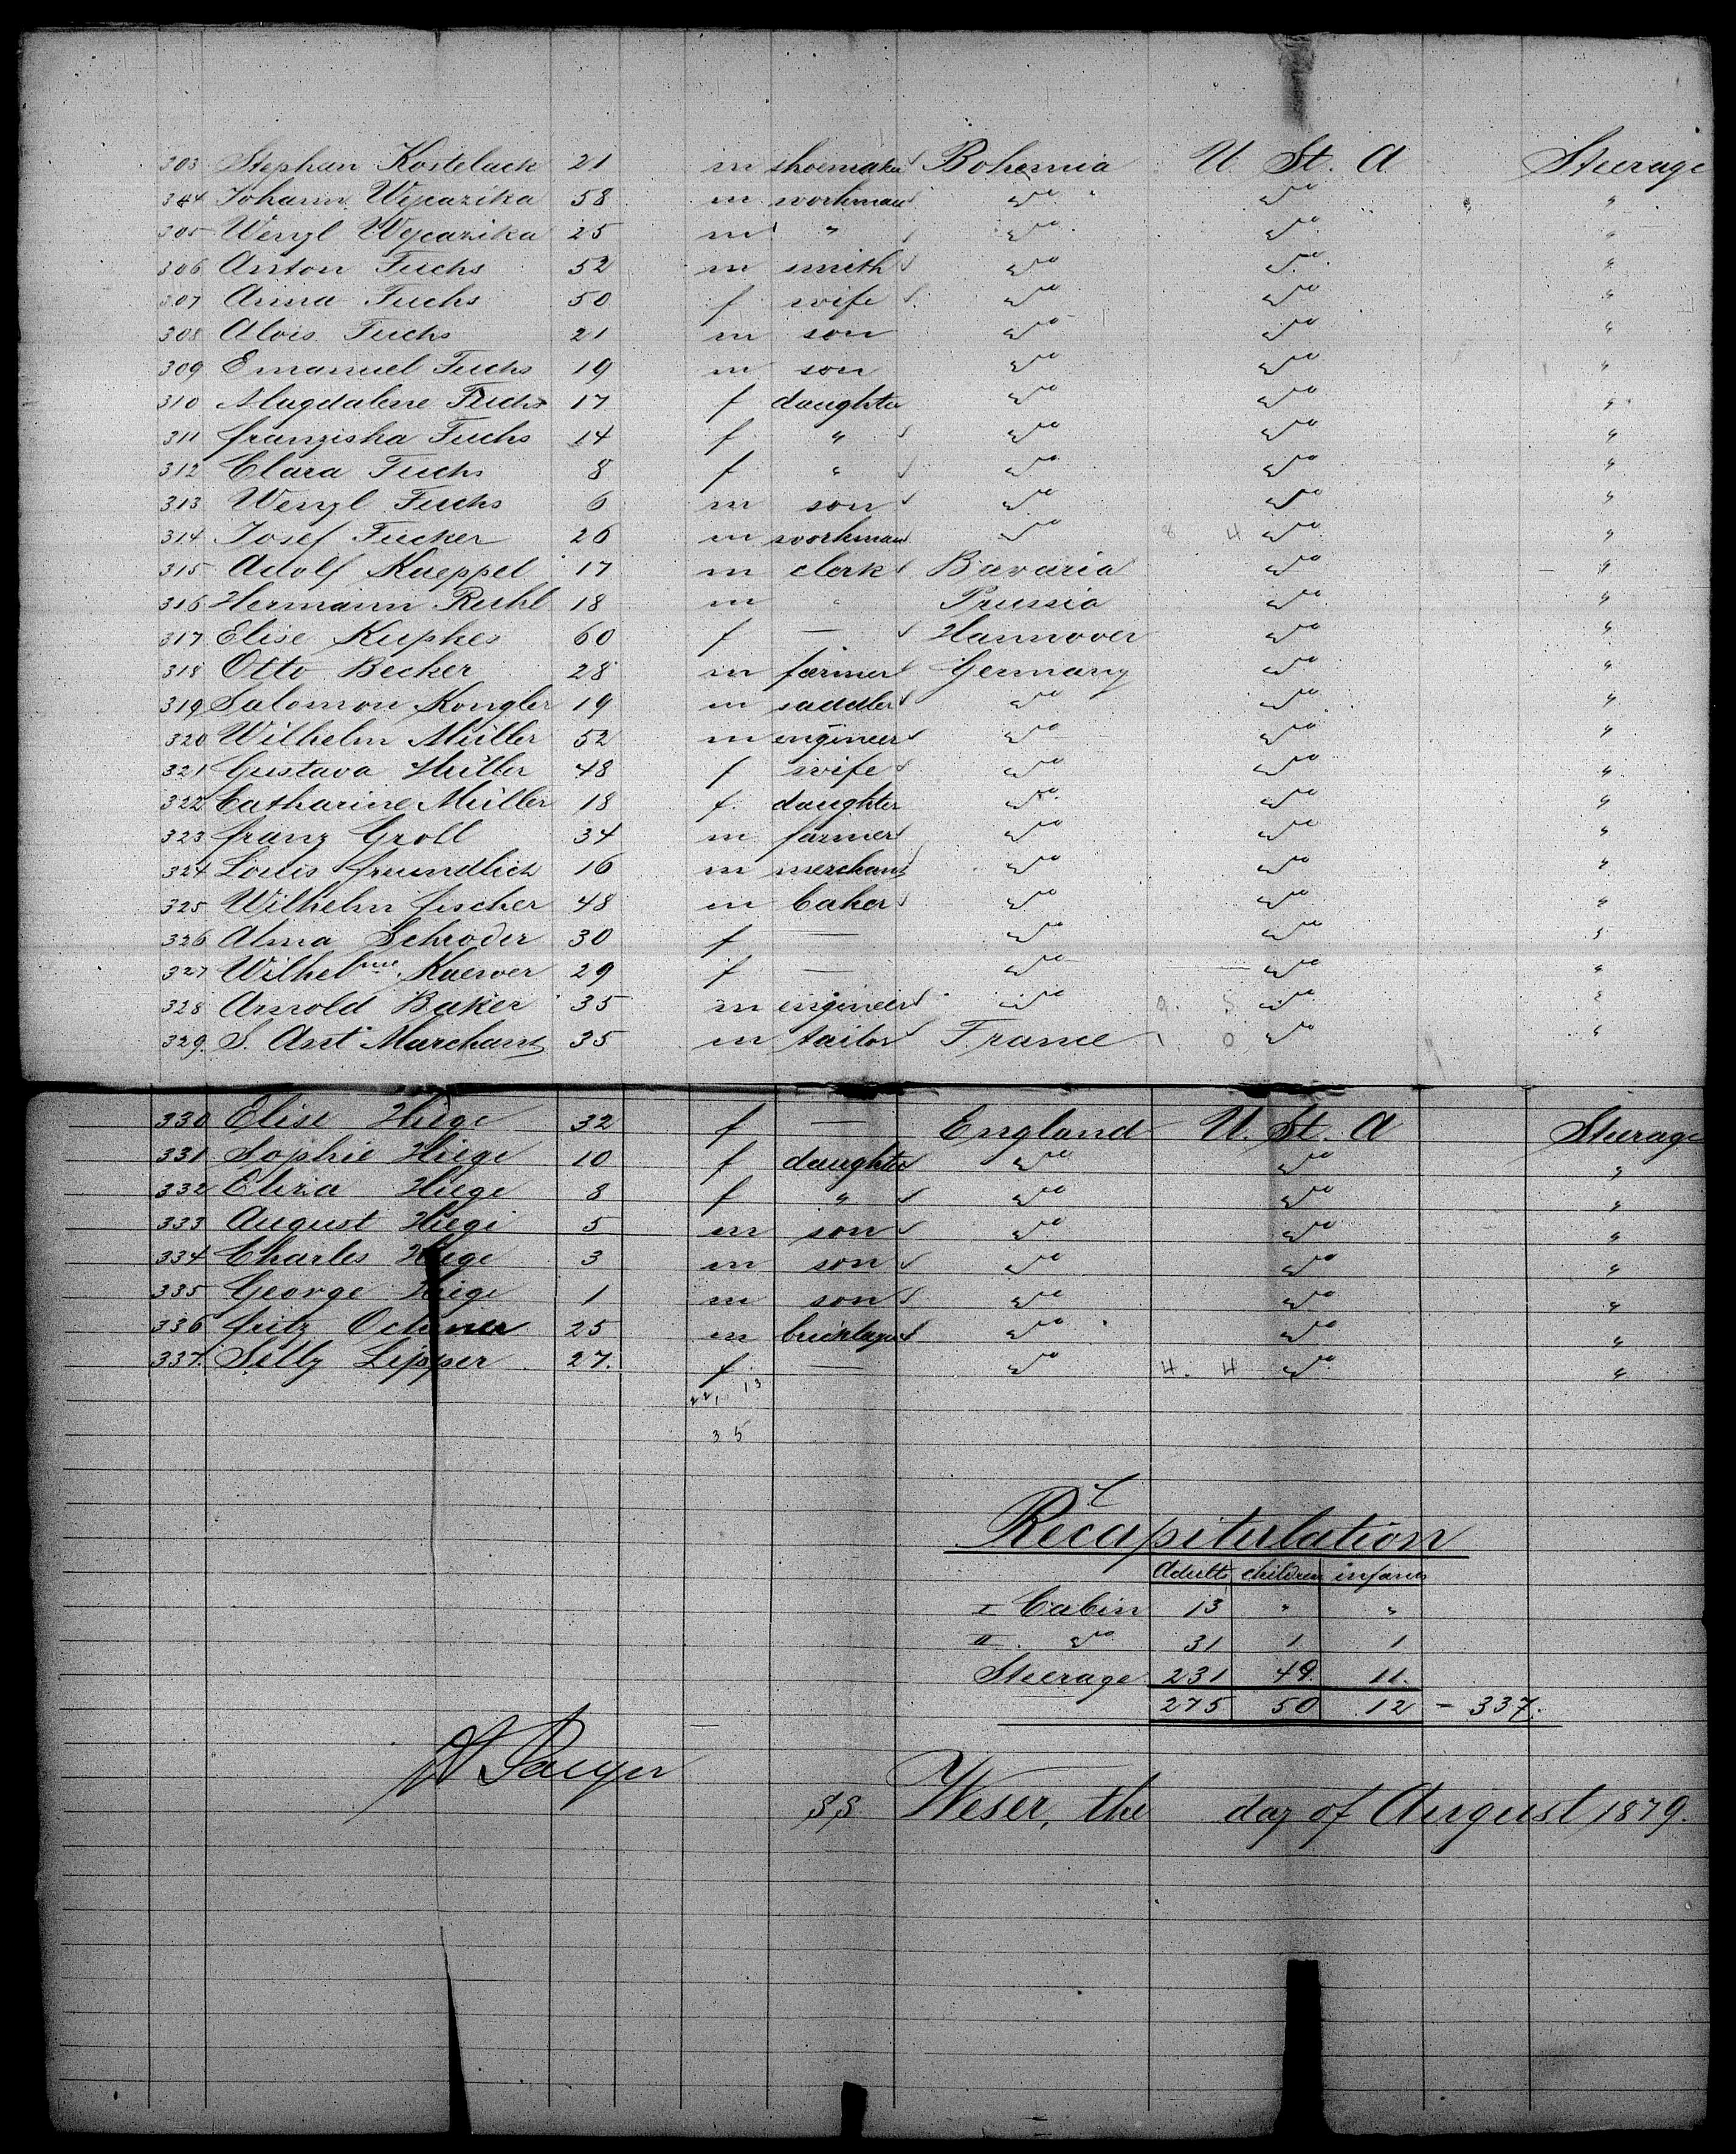 303 Stephan Kostelack 21 m shoemaker Bohemia U. St. A Steerage
304 Johann Wejcazika 58 m workman do do "
305 Wenzl Wejcazika 25 m " do do "
306 Anton Fuchs 52 m smith do do "
307 Anna Fuchs 50 f wife do do "
308 Alois Fuchs 21 m son do do "
309 Emanuel Fuchs 19 m son do do "
310 Magdalene Fuchs 17 f daughter do do "
311 Franziska Fuchs 14 f " do do "
312 Clara Fuchs 8 f " do do "
313 Wenzl Fuchs 6 m son do do "
314 Josef Fucker 26 m workman do 8 4 do "
315 Adolf Kaeppel 17 m clerk Bavaria do "
316 Hermann Ruhl 18 m " Prussia do "
317 Elise Kuphes 60 f — Hannover do "
318 Otto Becker 28 m farmer Germany do "
319 Salomon Kongler 19 m saddler do do "
320 Wilhelm Müller 52 m engineer do do "
321 Gustava Müller 48 f wife do do "
322 Catharine Müller 18 f. daughter do do "
323 Franz Groll 34 m farmer do do "
324 Louis Freundlich 16 m merchant do do "
325 Wilhelm Fischer 48 m baker do do "
326 Alma Schroder 30 f — do do "
327 Wilhelmine Kaewer 29 f — do do "
328 Arnold Baker 35 m engineer do 9. 5 do "
329. S. Ant. Marchant 35 m tailor France 1 0 do "
330 Elise Hiege 32 f — England U. St. A Steerage
331 Sophie Hiege 10 f daughter do do "
332 Eliza Hiege 8 f " do do "
333 August Hiegi 5 m son do do "
334 Charles Hiege 3 m son do do "
335 George Hiege 1 m son do do "
336 Fritz 25 m bricklayer do do "
337. Selly Lipper 27. f — do 4. 4 do "
22, 13
35
Recapitulation
Adults children infants
I Cabin 13 " "
II. do 31 1 1
Steerage 231 49. 11.
275 50 12 — 337.
SS Weser, the day of August 1879.